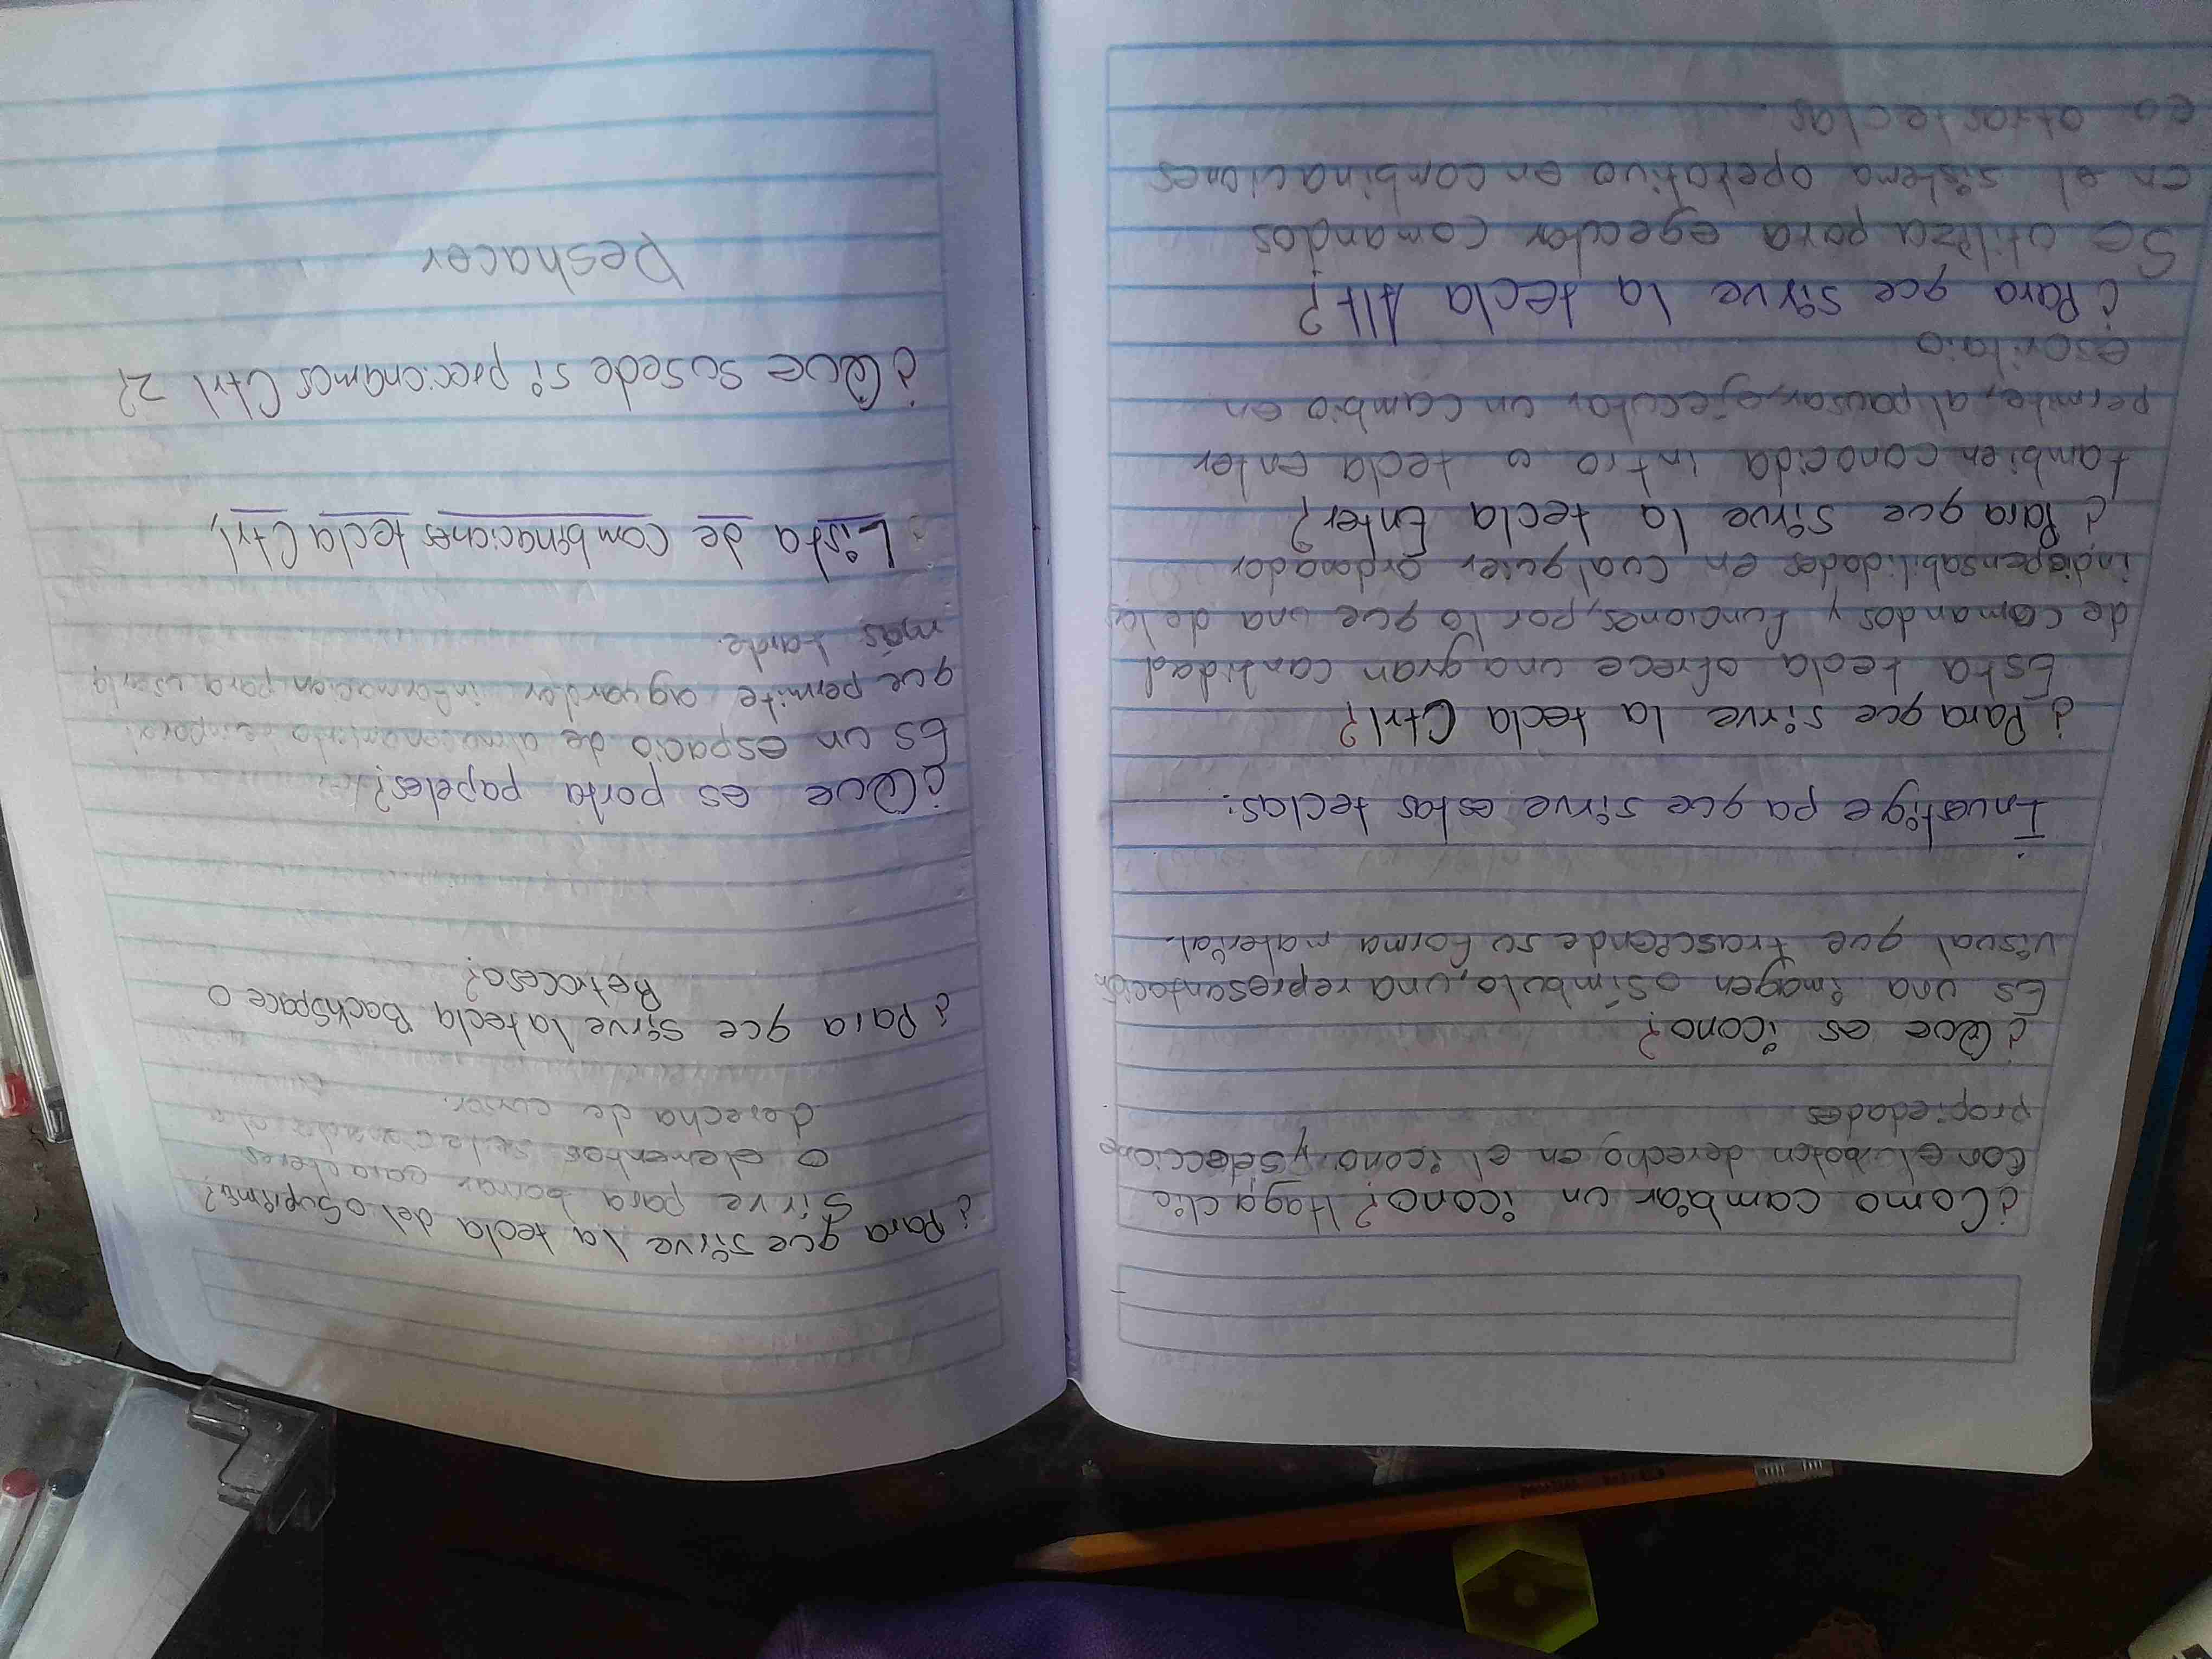 ¿Como cambiar un icono? Haga clic
con el boton derecho en el icono, y seleccione
propiedades
¿Que es icono?
Es una imagen o símbulo, una representación
visual que trasciende su forma material.
Investige pa que sirve estas teclas:
¿Para que sirve la tecla Ctrl?
Esta tecla ofrece una gran cantidad
de comandos y funciones, por lo que una de las
indispensabilidades en cualquier ordenador
¿Para que sirve la tecla Enter?
tambien conocida intro o tecla enter
permite, al pausar, ejecutar un cambio en
escritaio
¿Para que sirve la tecla Alt?
Se utiliza para egecutar comandos
en el sistema operativo en combinaciones
co otras teclas.
¿Para que sirve la tecla del o Suprimir?
Sirve para borrar caracteres
o elementos seleccionados a la
derecha de cursor.
¿Para que sirve la tecla BackSpace o
Retroceso?
¿Que es porta papeles?
Es un espacio de almacenamiento temporal
que permite aguardar informacion para userla
más tarde.
Lista de combinaciones tecla Ctrl
¿Que susede si preccionamos Ctrl Z?
Deshacer